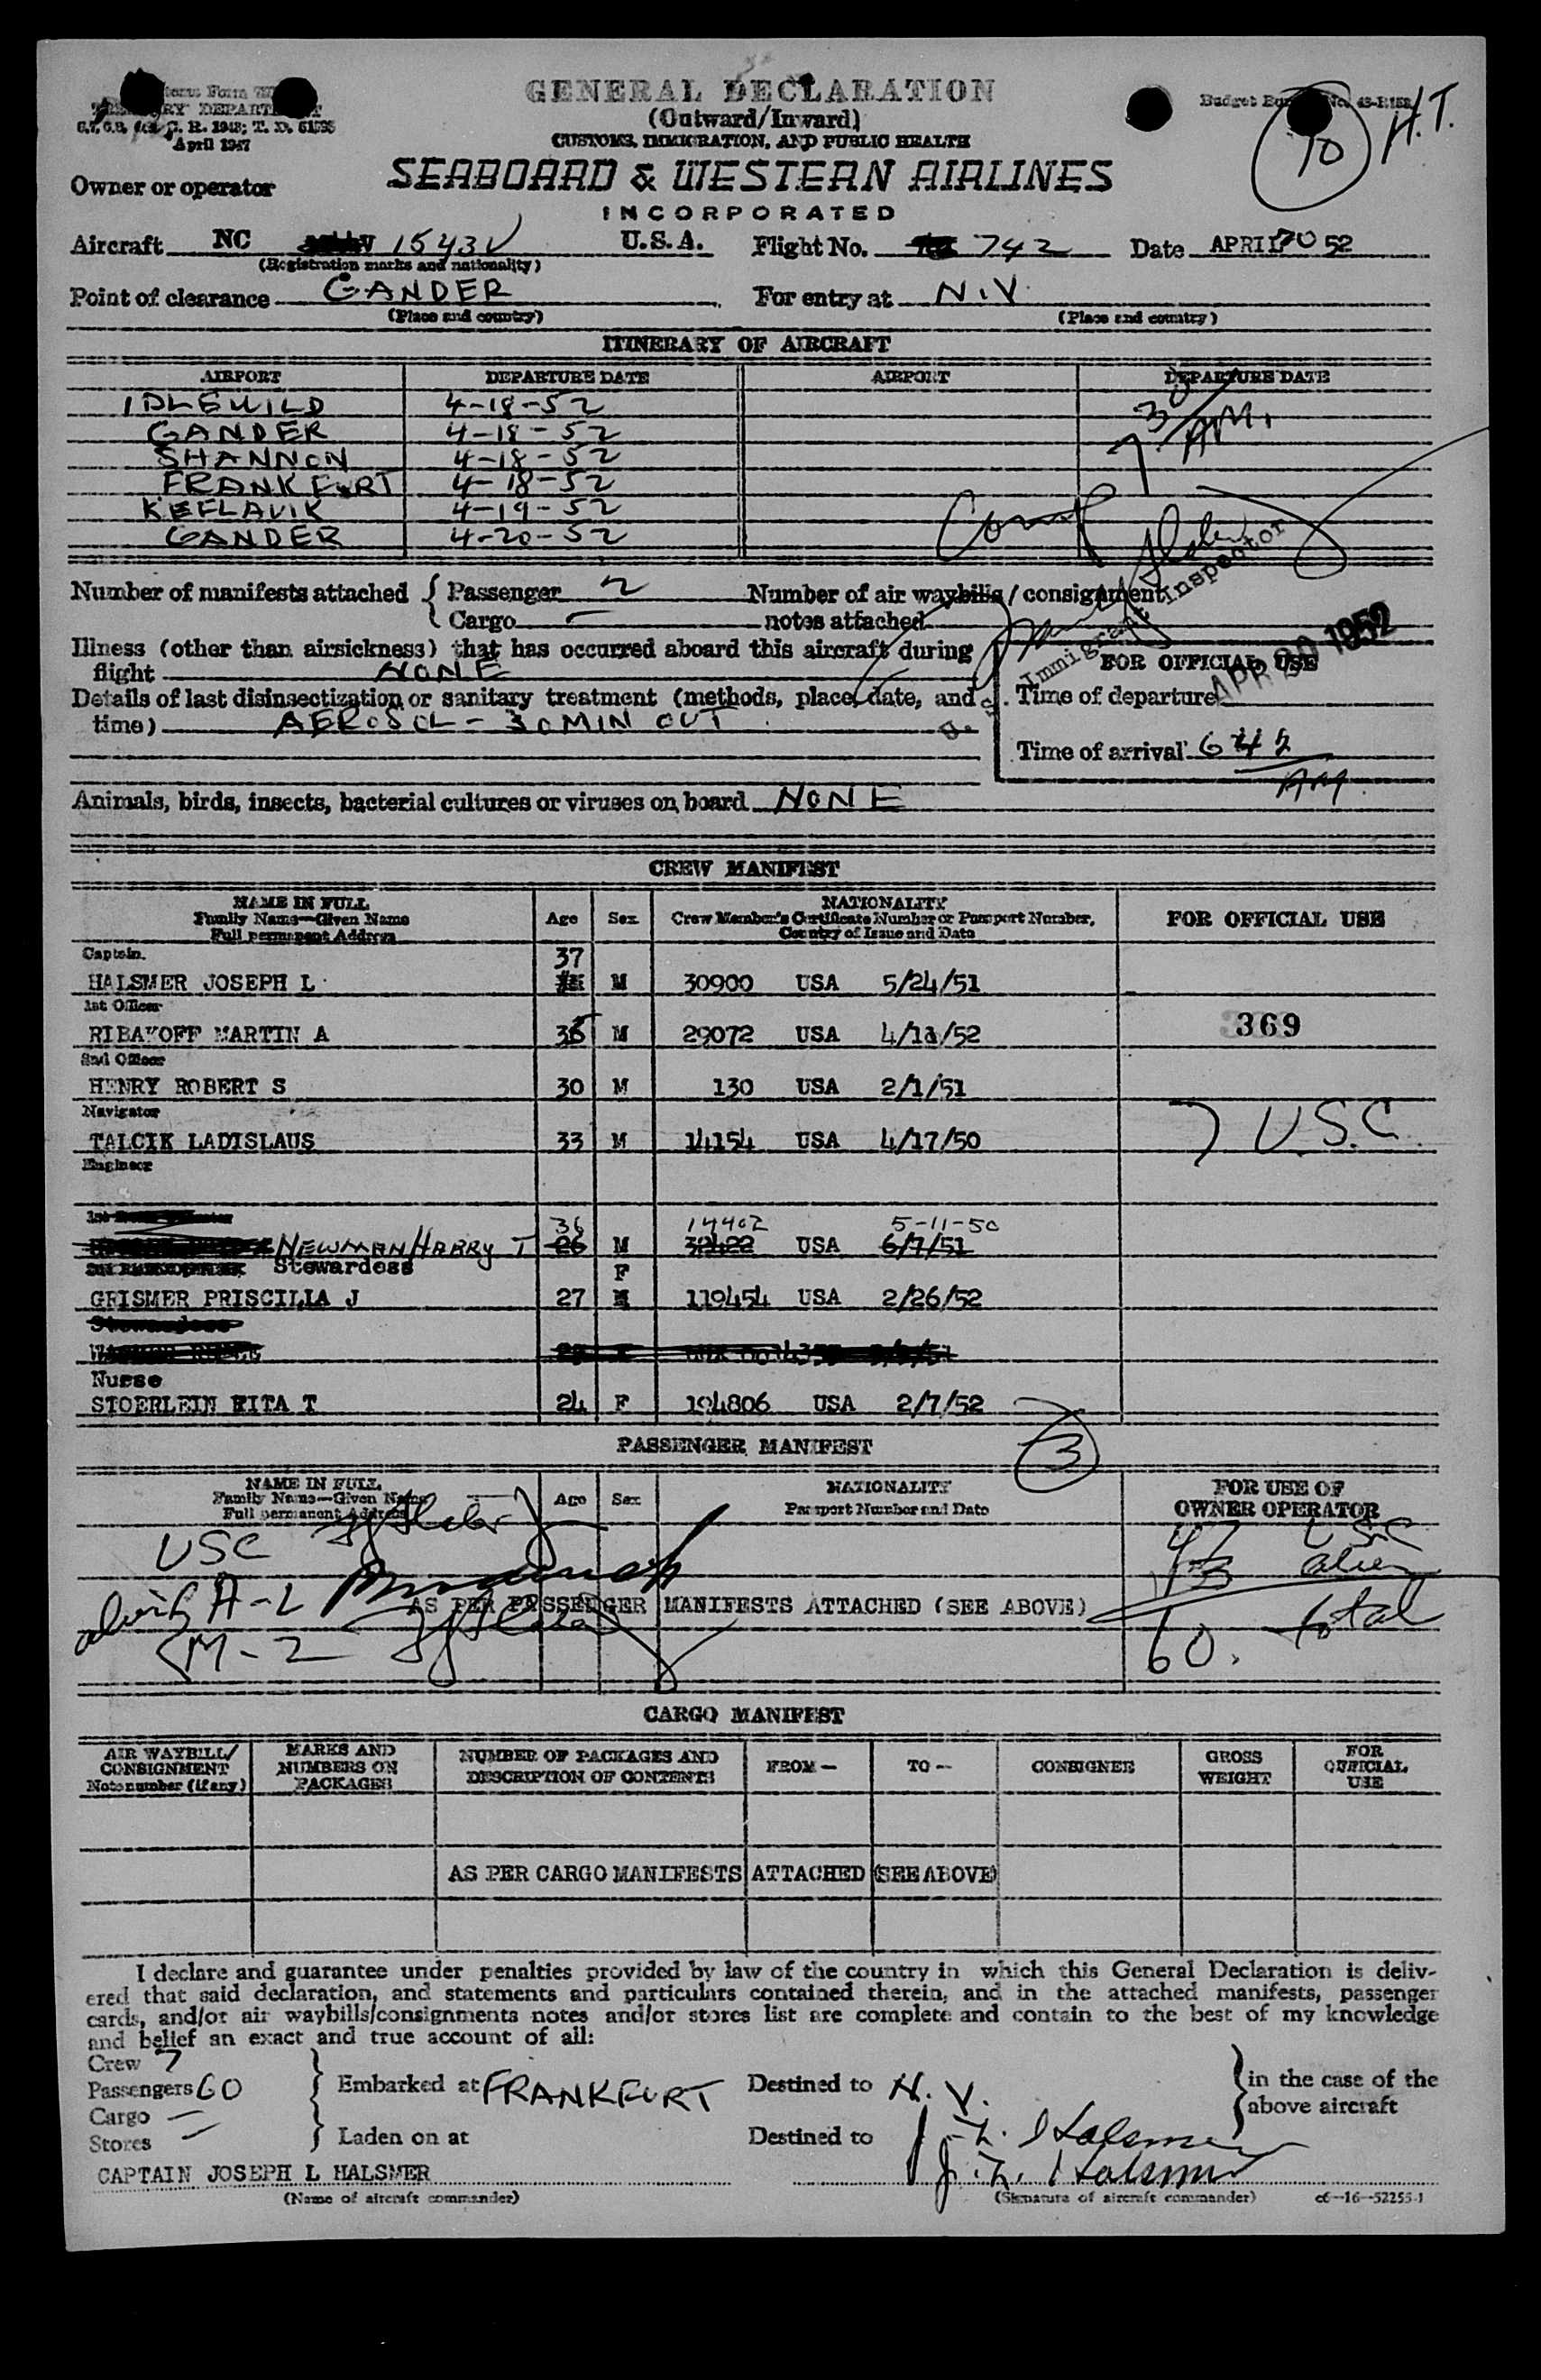 GENERAL DECLARATION
(Outward/Inward)
CUSTOMS, IMMIGRATION, AND PUBLIC HEALTH
TREASURY DEPARTMENT
April 1947
10 H.T.
Owner or operator SEABOARD & WESTERN AIRLINES
INCORPORATED
Aircraft NC 1543V U.S.A. Flight No. 742 Date APRIL 20 52
(Registration marks and nationality)
Point of clearance GANDER For entry at N.Y.
(Place and country) (Place and country)
ITINERARY OF AIRCRAFT
AIRPORT DEPARTURE DATE AIRPORT DEPARTURE DATE
IDLEWILD 4-18-52
GANDER 4-18-52
SHANNON 4-18-52
FRANKFURT 4-18-52
KEFLAVIK 4-19-52
GANDER 4-20-52
7 30 AM.
Number of manifests attached { Passenger 2 Number of air waybills / consignment
Cargo — notes attached
Immigrant Inspector
APR 20 1952
Illness (other than airsickness) that has occurred aboard this aircraft during
flight NONE
FOR OFFICIAL USE
Details of last disinsectization or sanitary treatment (methods, place, date, and
time) AEROSOL - 30 MIN OUT
Time of departure
Time of arrival 6 42 AM
Animals, birds, insects, bacterial cultures or viruses on board NONE
CREW MANIFEST
NAME IN FULL
Family Name—Given Name
Full permanent Address
Age Sex
NATIONALITY
Crew Member's Certificate Number or Passport Number,
Country of Issue and Date
FOR OFFICIAL USE
Captain. 37
HALSMER JOSEPH L M 30900 USA 5/24/51
1st Officer
RIBAKOFF MARTIN A 35 M 29072 USA 4/18/52
369
2nd Officer
HENRY ROBERT S 30 M 130 USA 2/1/51
Navigator
TALCIK LADISLAUS 33 M 14154 USA 4/17/50
7 U.S.C.
Engineer
36 14402 5-11-50
NEWMAN HARRY T 26 M 32422 USA 6/7/51
Stewardess F
GRISMER PRISCILLA J 27 M 119454 USA 2/26/52
Stewardess
Nurse
STOERLEIN RITA T 24 F 194806 USA 2/7/52
3
PASSENGER MANIFEST
NAME IN FULL
Family Name—Given Name
Full permanent Address
Age Sex
NATIONALITY
Passport Number and Date
FOR USE OF
OWNER OPERATOR
USC
47 USC
13 alien
A-L
AS PER PASSENGER MANIFESTS ATTACHED (SEE ABOVE)
M-2
60. total
CARGO MANIFEST
AIR WAYBILL/
CONSIGNMENT
Note number (if any)
MARKS AND
NUMBERS ON
PACKAGES
NUMBER OF PACKAGES AND
DESCRIPTION OF CONTENTS
FROM —
TO —
CONSIGNEE
GROSS
WEIGHT
FOR
OFFICIAL
USE
AS PER CARGO MANIFESTS ATTACHED (SEE ABOVE)
I declare and guarantee under penalties provided by law of the country in which this General Declaration is deliv-
ered that said declaration, and statements and particulars contained therein, and in the attached manifests, passenger
cards, and/or air waybills/consignments notes and/or stores list are complete and contain to the best of my knowledge
and belief an exact and true account of all:
Crew 7
Passengers 60 Embarked at FRANKFURT Destined to N.Y. in the case of the
Cargo — above aircraft
Stores — Laden on at Destined to J. L. Halsmer
CAPTAIN JOSEPH L HALSMER J. L. Halsmer
(Name of aircraft commander) (Signature of aircraft commander) c6—16—52255-1